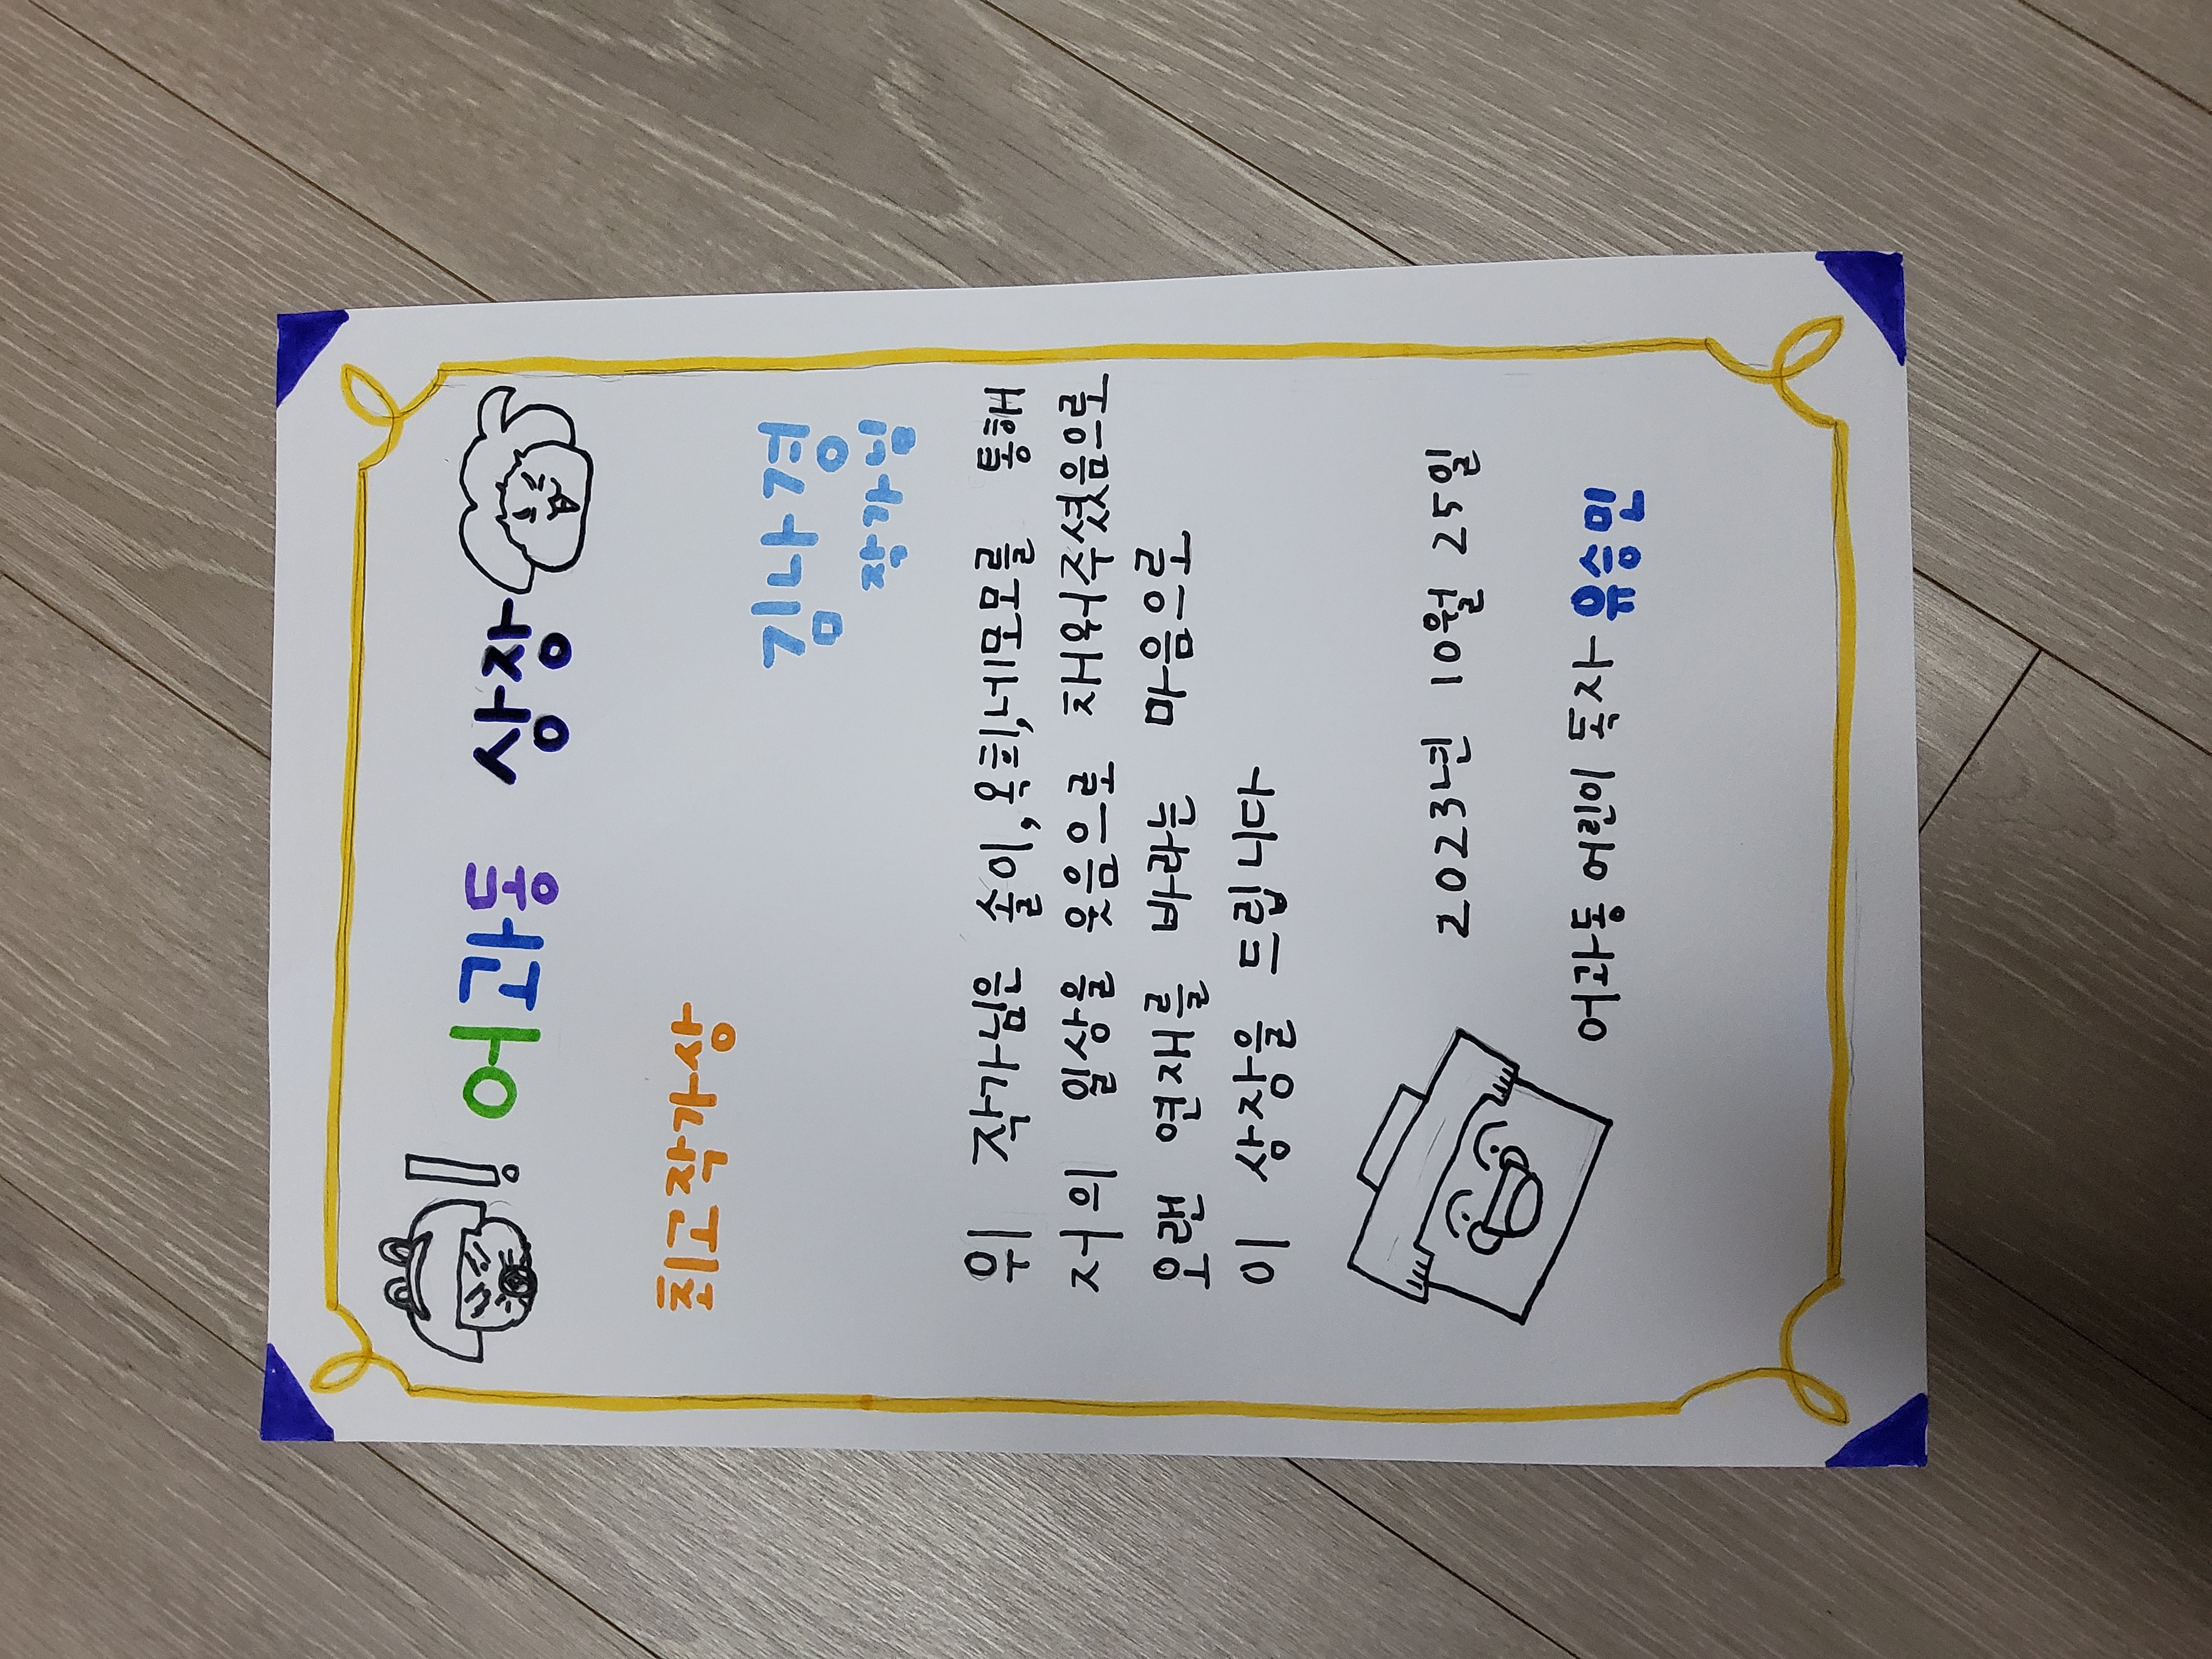 어과동 상장
최고작가상
김나경
작가님
위 작가님은 솔이,옥희,네모를 통해
저의 일상을 웃음으로 채워주셨음으로
오랜 연재를 바라는 마음으로
이 상장을 드립니다
2023년 10월 25일
어과동 어린이 독자 유승민